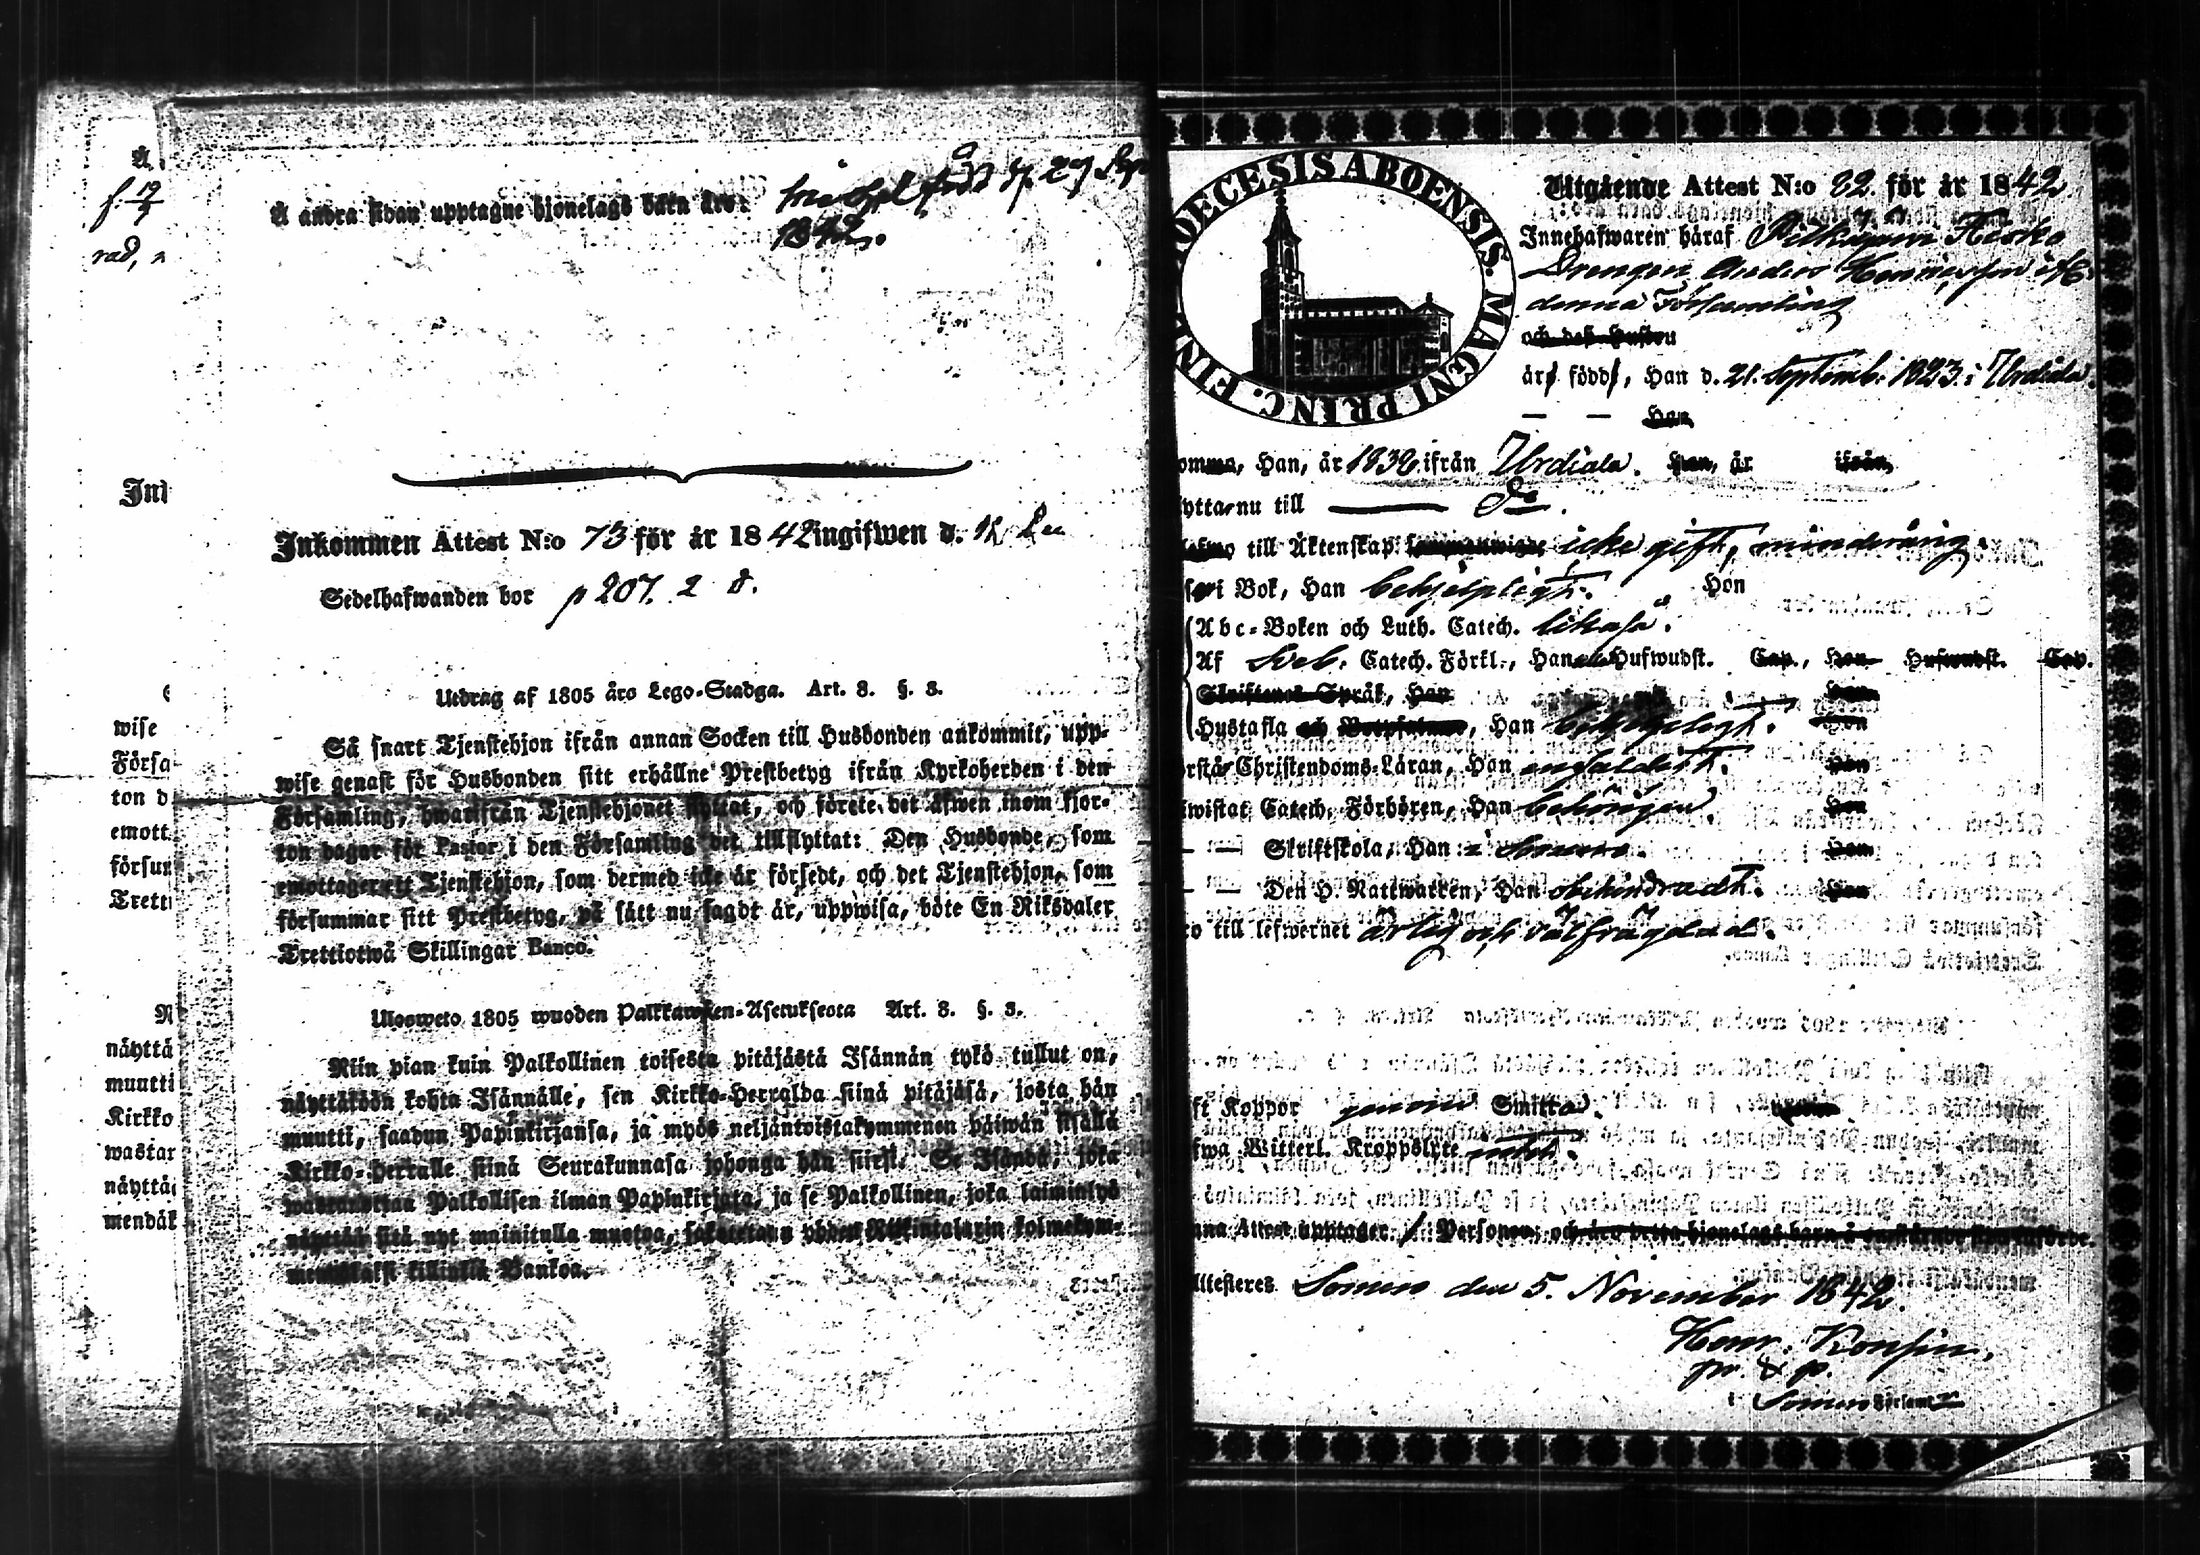 Å
f. 19/7
rad,
Inl
wise
Försa
ton d
emott
försum
Trett
N
näyttä
muutti
Kirkko
wastar
näyttä
mendäk
Å andra sidan upptagne hjonelags barn äro: född d. 27 Sept
1842.
Inkommen Attest N:o 73 för år 1842 ingifwen d. 12
Sedelhafwanden bor p 207. 2 d.
Utdrag af 1805 års Lego-Stadga. Art. 8. §. 3.
Så snart Tjenstehjon ifrån annan Socken till Husbonden ankommit, upp-
wise genast för Husbonden sitt erhållne Prestbetyg ifrån Kyrkoherden i den
Församling, hwarifrån Tjenstehjonet flyttat, och förete det äfwen inom fjor-
ton dagar för Pastor i den Församling det tillflyttat: Den Husbonde, som
emottager ett Tjenstehjon, som dermed icke är försedt, och det Tjenstehjon, som
försummar sitt Prestbetyg, på sätt nu sagdt är, uppwisa, böte En Riksdaler
Trettiotwå Skillingar Banco.
Ulosweto 1805 wuoden Palkkawäen-Asetuksesta Art. 8. §. 3.
Niin pian kuin Palkollinen toisesta pitäjästä Isännän tykö tullut on,
näyttäköön kohta Isännälle, sen Kirkko-Herralda siinä pitäjäsä, josta hän
muutti, saadun Papinkirjansa, ja myös neljäntoistakymmenen päiwän sisällä
Kirkko-Herralle siinä Seurakunnasa johonga hän siirsi. Se Isändä, joka
wastaanottaa Palkollisen ilman Papinkirjata, ja se Palkollinen, joka laiminlyö
näyttää sitä nyt mainitulla muotoa, sakotetaan yhden Riikintalarin kolmekym-
mendäkaksi killingiä Bankoa.
DIOECESIS ABOENSIS. MAGNI PRINC. FIN
Utgående Attest N:o 82 för år 1842
Innehafwaren häraf Pitkäjärvi Heikko
Drengen Anders Henricsson i
denna Församling
och dess Hustru
är född, Han d. 21. Septemb. 1823. i Urdiala.
— — Hon
omma, Han, år 1836 ifrån Urdiala. Hon, år ifrån
ytta nu till — Do.
till Äktenskap: icke gift, minderårig.
i Bok, Han behjelpligt. Hon
Abc-Boken och Luth. Catech. likaså.
Af Sveb. Catech. Förkl., Han alla Hufwudst. Cap., Hon Hufwudst. Cap.
Skriftenes Språk, Han Hon
Hustafla och Botpsalmer, Han behjelpligt. Hon
orstår Christendoms-Läran, Han enfaldigt. Hon
wistat Catech. Förhören, Han behörigen. Hon
— — Skriftskola, Han i Somero. Hon
— — Den H. Nattwarden, Han obehindradt. Hon
o till lefwernet ärlig och välfrägdad.
ft Koppor genom Smitta.
fwa Witterl. Kroppslyte intet.
nna Attest upptager 1 Person och äro detta hjonelags barn å omstående sida införde.
Attesteres Somero den 5. November 1842.
Henr. Konsin,
pr. & p.
i Somero Församl.